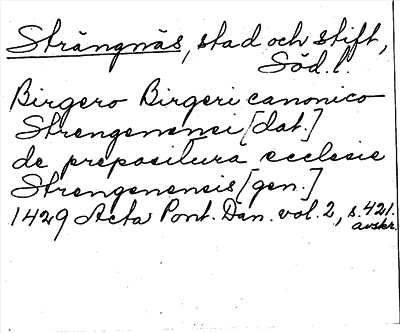 Strängnäs, stad och stift,
Söd. l.
Birgero Birgeri canonico
Strengenensi [dat.]
de prepositura ecclesie
Strengenensis [gen.]
1429 Acta Pont. Dan. vol. 2, s. 421.
avskr.